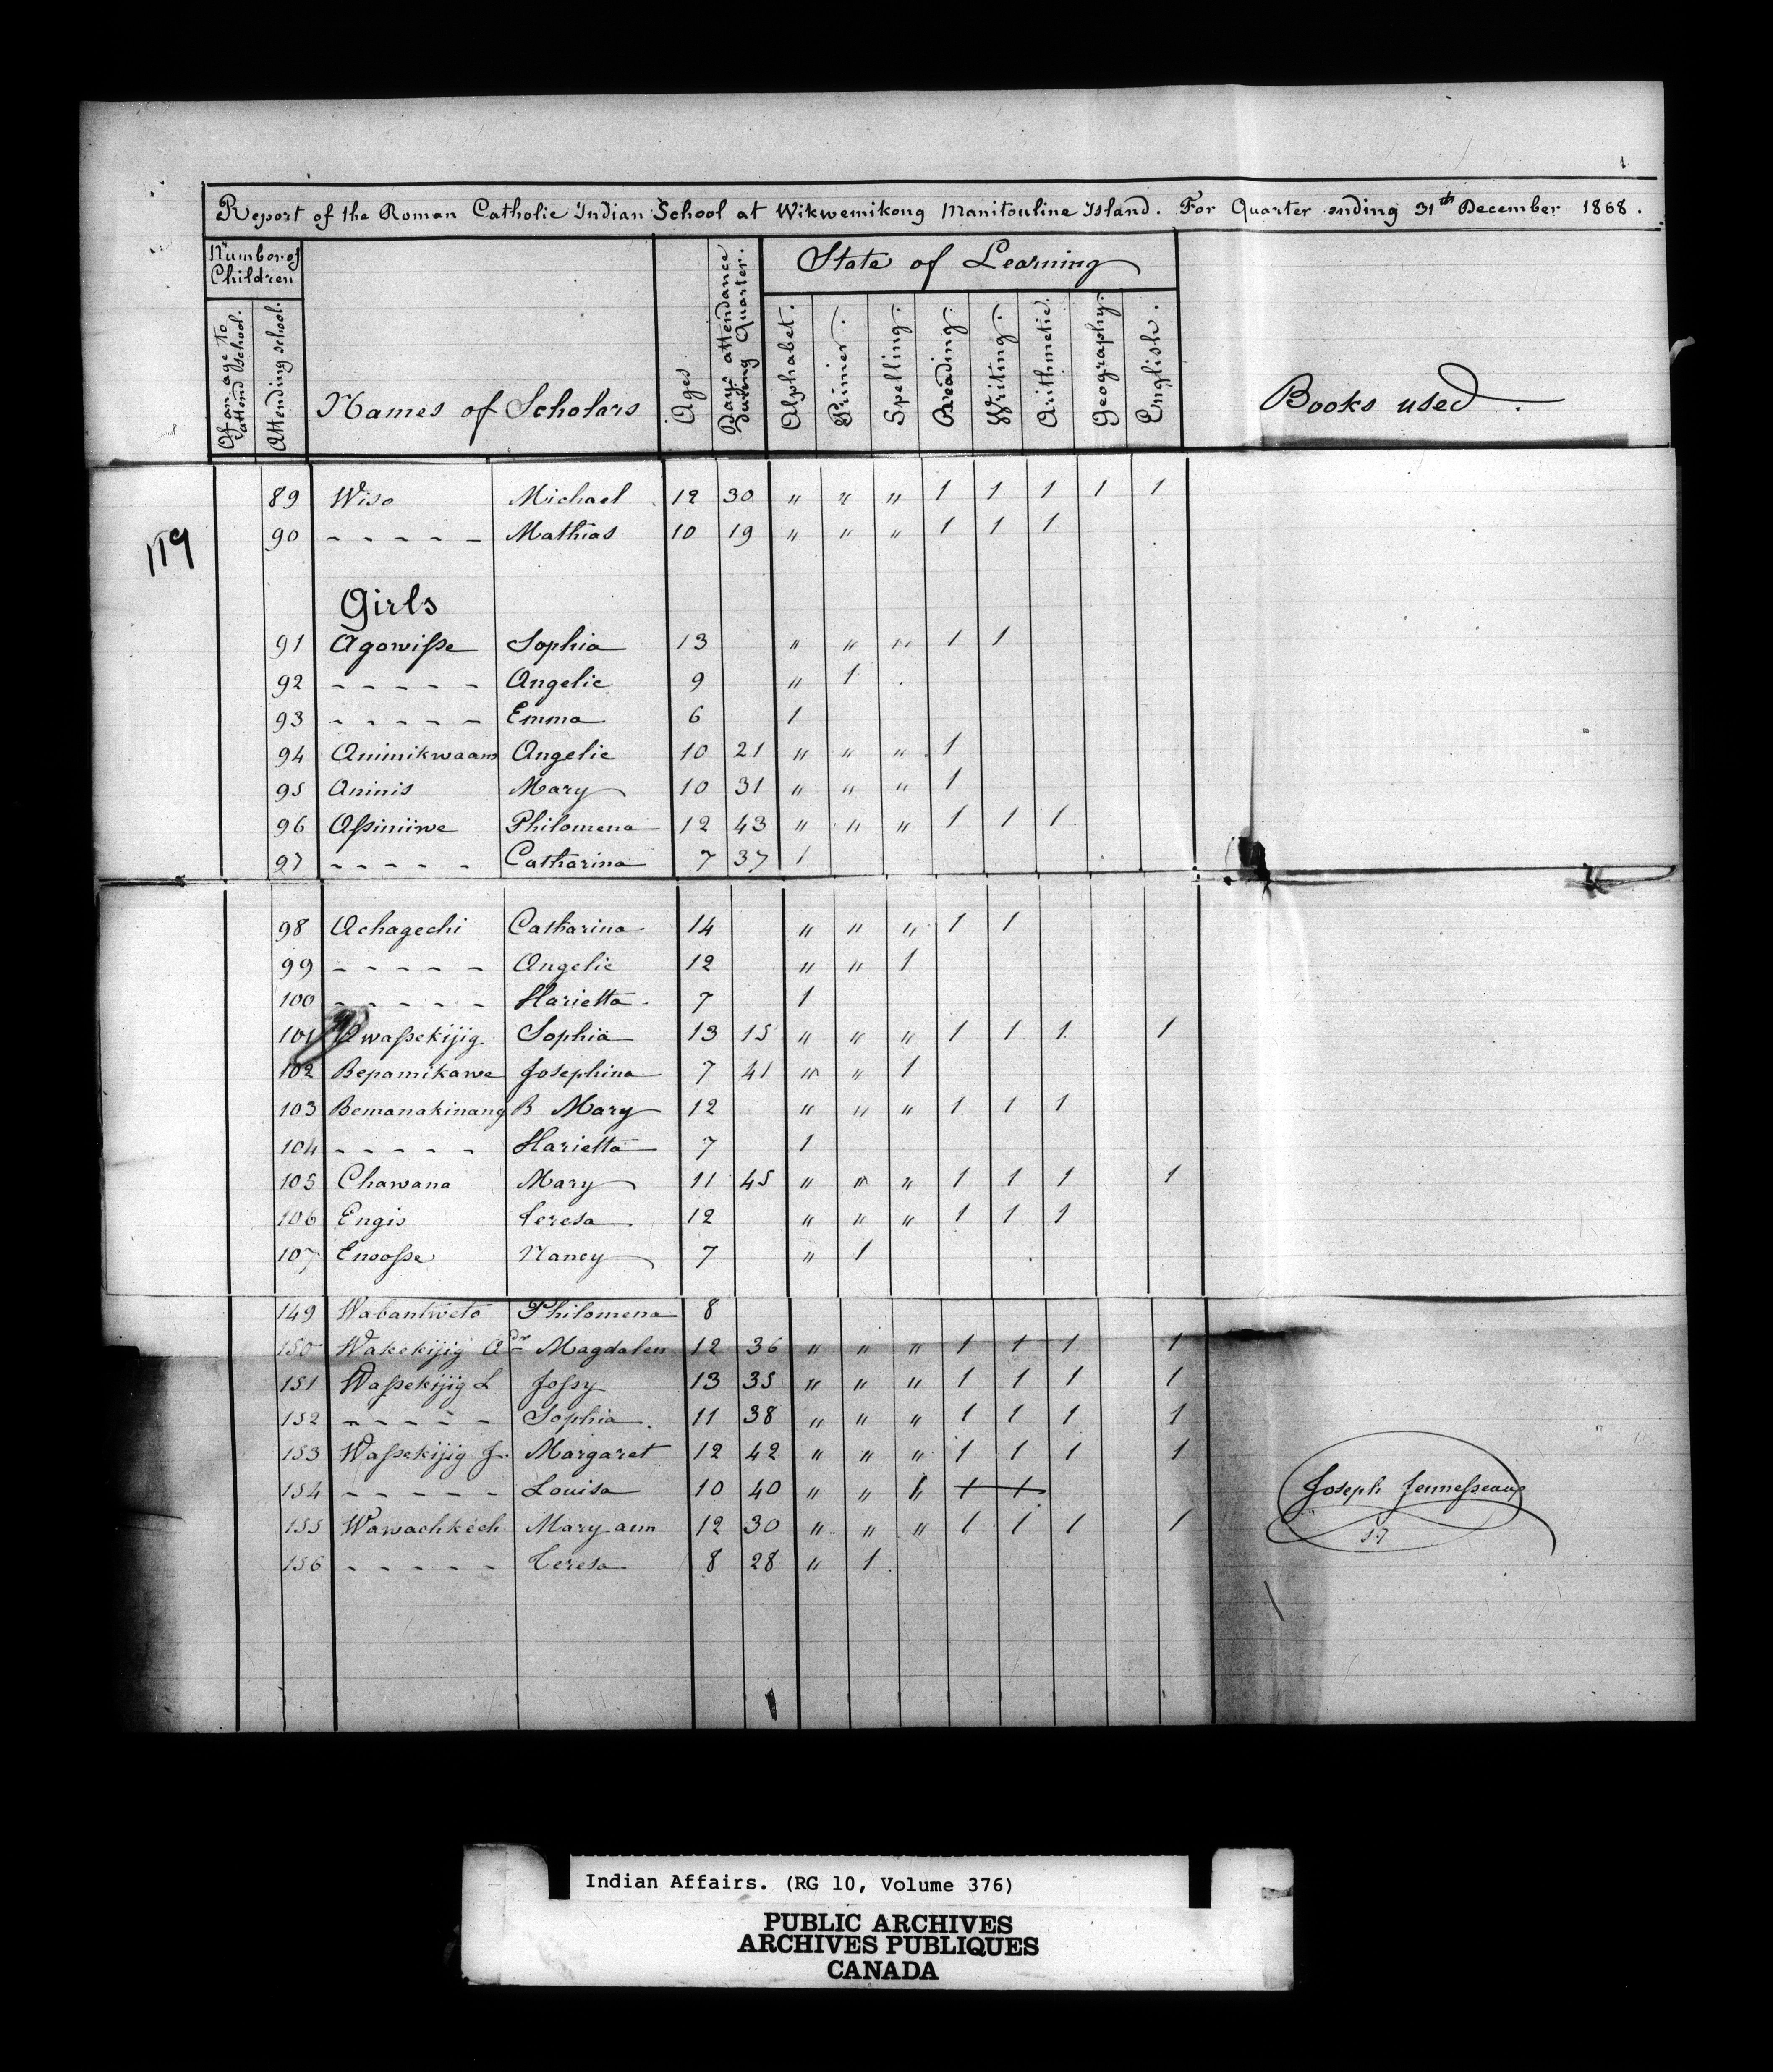 Report of the Roman Catholic Indian School at Wikwemikong Manitouline Island. For Quarter ending 31th December 1868.
Number of Children
State of Learning
Of an age to attend School.
Attending school.
Names of Scholars
Ages
Days attendance during Quarter.
Alphabet.
Primer.
Spelling.
Reading.
Writing.
Arithmetic.
Geography.
English.
Books used.
89 Wiso Michael 12 30 " " " 1 1 1 1 1
119
90 - - - - - Mathias 10 19 " " " 1 1 1
Girls
91 Agowisse Sophia 13 " " " 1 1
92 - - - - - Angelic 9 " 1
93 - - - - - Emma 6 1
94 Animikwaam Angelic 10 21 " " " 1
95 Aninis Mary 10 31 " " " 1
96 Assiniiwe Philomena 12 43 " " " 1 1 1
97 - - - - - Catharina 7 37 1
98 Achagechi Catharina 14 " " " 1 1
99 - - - - - Angelic 12 " " 1
100 - - - - - Harietta 7 1
101 Awassekijig Sophia 13 15 " " " 1 1 1 1
102 Bepamikawe Josephina 7 41 " " 1
103 Bemanakinang B Mary 12 " " " 1 1 1
104 - - - - - Harietta 7 1
105 Chawana Mary 11 45 " " " 1 1 1 1
106 Engis Teresa 12 " " " 1 1 1
107 Enoosse Nancy 7 " 1
149 Wabantweto Philomena 8
150 Wakekijig Adr Magdalen 12 36 " " " 1 1 1 1
151 Wassekijig L Jossy 13 35 " " " 1 1 1 1
152 - - - - - Sophia 11 38 " " " 1 1 1 1
153 Wassekijig J. Margaret 12 42 " " " 1 1 1 1
154 - - - - - Louisa 10 40 " " 1 1 1
Joseph Jennesseaux
155 Wawachkech Mary ann 12 30 " " " 1 1 1 1
156 - - - - - Teresa 8 28 " 1
Indian Affairs. (RG 10, Volume 376)
PUBLIC ARCHIVES
ARCHIVES PUBLIQUES
CANADA